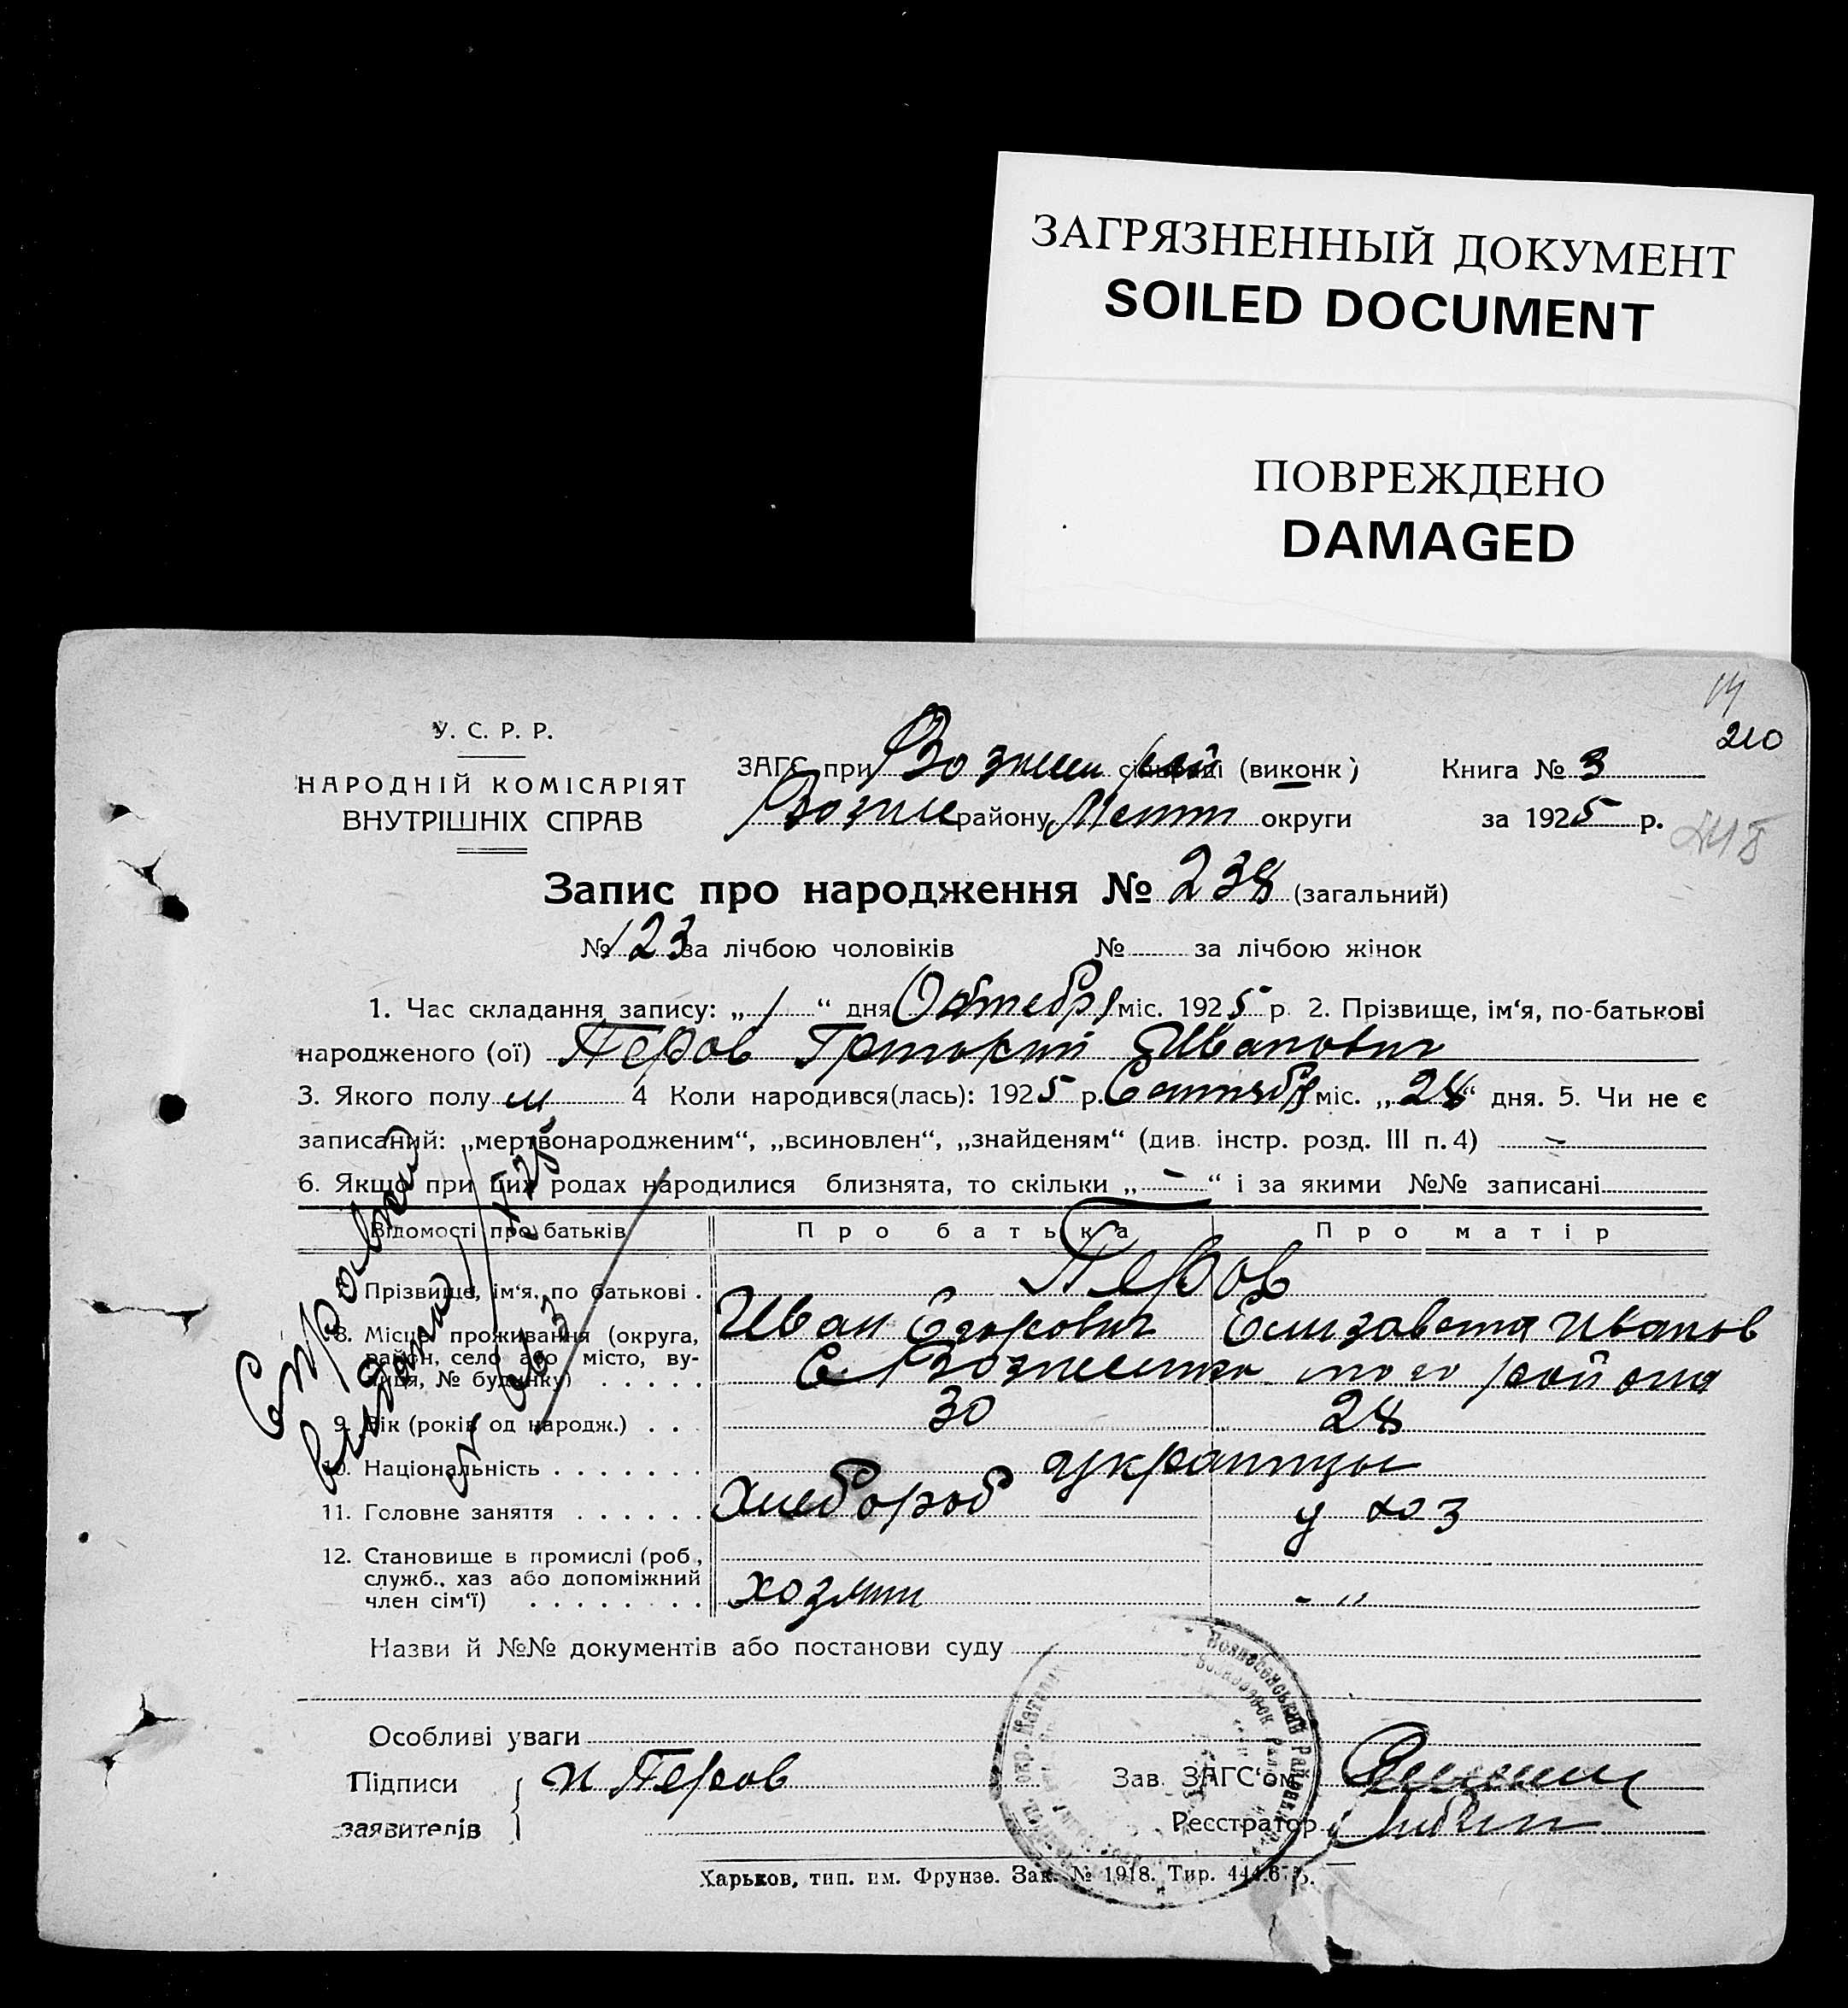 ЗАГРЯЗНЕННЫЙ ДОКУМЕНТ
SOILED DOCUMENT
ПОВРЕЖДЕНО
DAMAGED
210
У. С. Р. Р.
НАРОДНІЙ КОМІСАРІЯТ
ВНУТРІШНІХ СПРАВ
ЗАГС при (виконк) Книга № 3
району округи за 1925 р.
Запис про народження № 238 (загальний)
№ 123 за лічбою чоловіків № за лічбою жінок
1. Час складання запису: „ 1 “ дня Октебр міс. 1925 р. 2. Прізвище, ім‘я, по-батькові
народженого (ої) Перов Григорий Иванович
3. Якого полу м 4 Коли народився(лась): 1925 р. Сентябр міс. „28“ дня. 5. Чи не є
записаний: „мертвонародженим“, „всиновлен“, „знайденям“ (див. інстр. розд. III п. 4) –
6. Якщо при цих родах народилися близнята, то скільки „ – “ і за якими №№ записані
Відомості про батьків Про батька Про матір
Прізвище, ім‘я, по батькові . Перов
Иван Егорович Елизавета Иванов
8. Місце проживання (округа,
район, село або місто, вулиця, № будинку) . . . . . С. того района
9. Вік (років од народж.) . . 30 28
10. Національність . . . . . . . украинцы
11. Головне заняття . . . . . . Хлебороб у хоз
12. Становище в промислі (роб.,
служб., хаз або допоміжний
член сім‘ї) . . . . . . . . хозяин - „
Справка
выдана
Назви й №№ документів або постанови суду
Особливі уваги
Підписи
заявителів
И Перов
Зав. ЗАГС‘ом
Реєстратор
Харьков, тип. им. Фрунзе. Зак. № 1918. Тир.